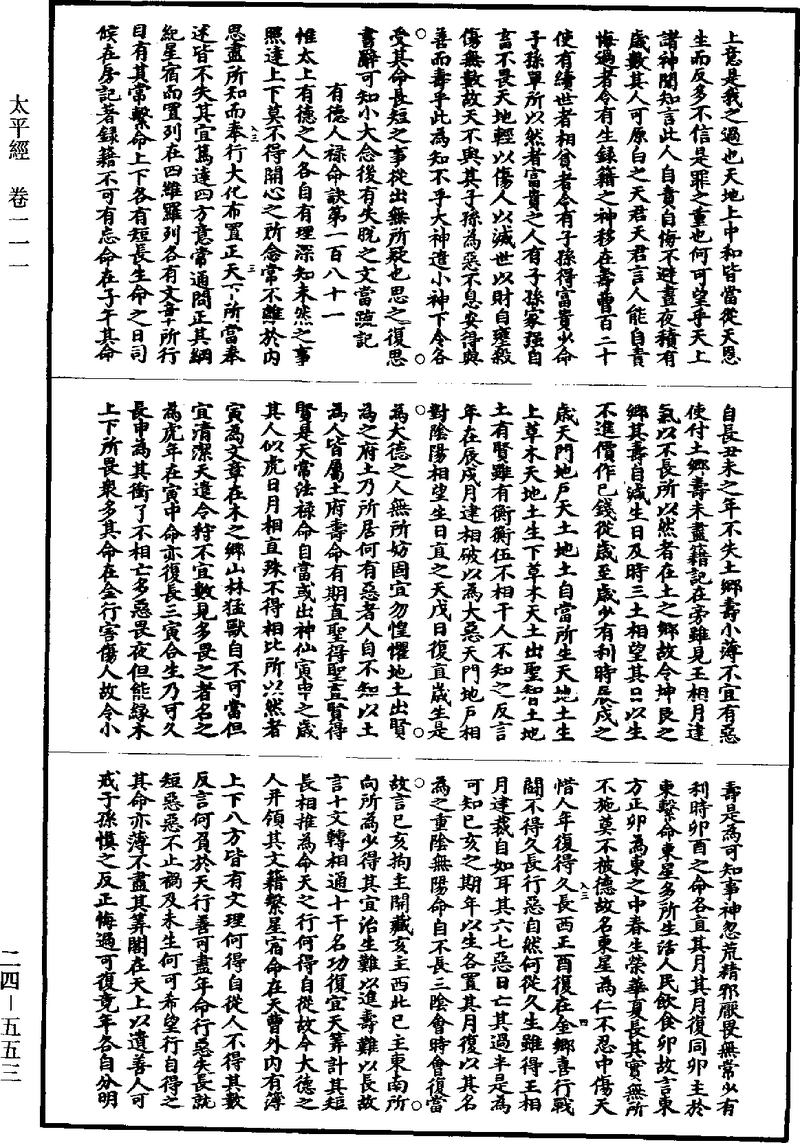 太平經　卷一一一
上意是我之過也天地上中和皆當從天恩
生而反多不信是罪之重也何可望乎天上
諸神聞知言此人自責自悔不避晝夜積有
歲數其人可原白之天君天君言人能自責
悔過者令有生録籍之神移在壽曹百二十
使有續世者相貧者令有子孫得富貴少命
子孫單所以然者富貴之人有子孫家強自
畜不畏天地輕以傷人以滅世以財自壅殺
傷無數故天不與其子孫為惡不息安得與
善而壽乎此為知不乎大神遣小神下令各
受其命長短之事從出無所疑也思之復思
書辭可知小大念後有失脫之文當疏記
有德人禄命訣第一百八十一
惟太上有德之人各自有理深知未然之事
照達上下莫不得開心之所念常不離於内
思盡所知而奉行大化布置正天下所當奉
述皆不失其宜篤達四方意常通問正其綱
紀星宿而置列在四維羅列各有文章所行
目有其常繫命上下各有短長生命之日司
候在房記著録籍不可有忘命在子午其命
自長丑未之年不失土鄉壽小薄不宜有惡
使付土鄉壽未盡籍記在旁雖見王相月建
氣以不長所以然者在土之鄉故令坤艮之
鄉其壽自減生日及時三土相望其日以生
不進價作已錢從歲至歲少有利時辰戌之
歲天門地戶天土地土自當所生天地土生
上草木天地土生下草木天土出聖智土地
土有賢雖有衡衡伍不相干人不知之反言
年在辰戌月建相破以為大惡天門地戶相
對陰陽相望生日直之天戊日復直歲生是
為大德之人無所妨固宜勿惶懼地土出賢
為之府土乃所居何有惡者人自不知以土
為人皆屬土府壽命有期直聖得聖直賢得
賢是天常法禄命自當或出神仙寅申之歲
其人似虎日月相直殊不得相比所以然者
寅為文章在木之鄉山林猛獸自不可當但
宜清潔天遣令狩不宜數見多畏之者名之
為虎年在寅中命亦復長三寅合生乃可久
長申為其衝了不相亡多惡畏夜但能緣木
上下所畏衆多其命在金行害傷人故令小
壽是為可知事神忽荒精邪厭畏無常少有
利時卯酉之命各直其月其月復同卯主於
東繫命東星多所生活人民飲食卯故言東
方正卯為東之中春生榮華夏長其實無所
不施莫不被德故名東星為仁不忍中傷天
惜人年復得久長西正酉復在金鄉喜行戰
鬬不得久長行惡自然何從久生雖得王相
月建裁自如耳其六七惡日亡其過半是為
可知巳亥之期年以生各置其月復以其名
為之重陰無陽命自不長三陰會時會復當
故言巳亥拘主開藏亥主西北巳主東南所
向所為少得其宜治生難以進壽難以長故
言十文轉相通十干名功復宜天算計其短
長相推為命天之行何得自從故令大德之
人并領其文籍繫星宿命在天曹外内有簿
上下八方皆有文理何得自從人不得其數
反言何負於天行善可盡年命行惡失長就
短惡惡不止禍及未生何可希望行自得之
其命亦薄不盡其算閣在天上以遺善人可
戒子孫慎之反正悔過可復竟年各自分明
二四—五五三